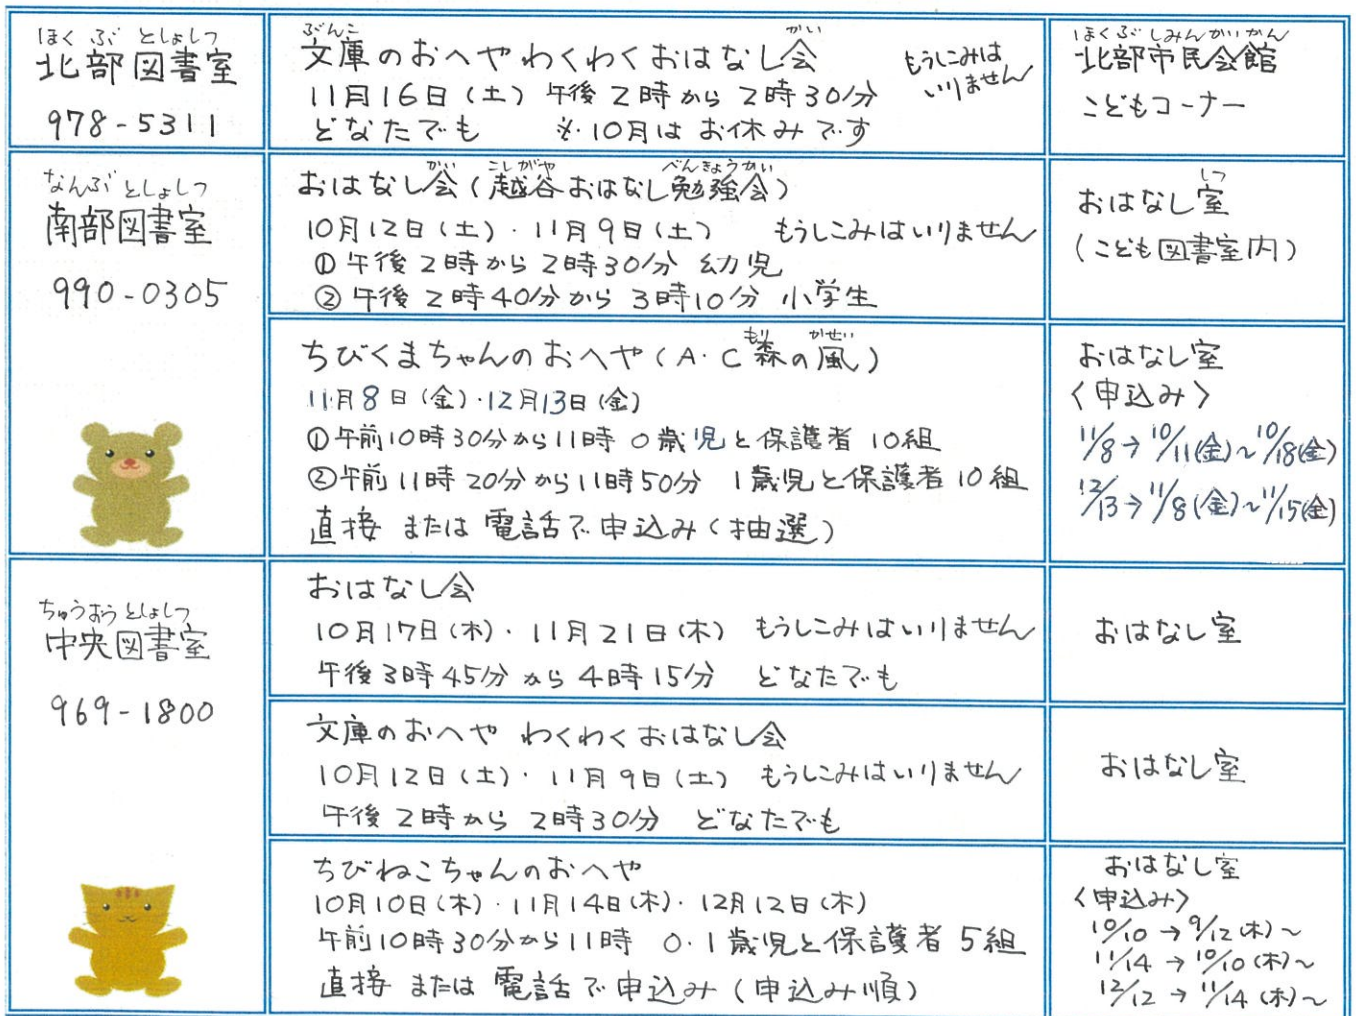 ほくぶ としょしつ
北部図書室
978-5311
ぶんこ かい
文庫のおへやわくわくおはなし会
もうしこみは
いりません
11月16日(土) 午後2時から2時30分
どなたでも ※10月はお休みです
ほくぶしみんかいかん
北部市民会館
こどもコーナー
なんぶとしょしつ
南部図書室
990-0305
かい こしがや べんきょうかい
おはなし会(越谷おはなし勉強会)
10月12日(土)・11月9日(土) もうしこみはいりません
①午後2時から2時30分 幼児
②午後2時40分から3時10分 小学生
しつ
おはなし室
(こども図書室内)
もり かぜい
ちびくまちゃんのおへや(A・C森の風)
11月8日(金)・12月13日(金)
①午前10時30分から11時 0歳児と保護者10組
②午前11時20分から11時50分 1歳児と保護者10組
直接 または 電話で申込み(抽選)
おはなし室
〈申込み〉
11/8→10/11(金)~10/18(金)
12/13→11/8(金)~11/15(金)
ちゅうおうとしょしつ
中央図書室
969-1800
おはなし会
10月17日(木)・11月21日(木) もうしこみはいりません
午後3時45分から4時15分 どなたでも
おはなし室
文庫のおへや わくわくおはなし会
10月12日(土)・11月9日(土) もうしこみはいりません
午後2時から2時30分 どなたでも
おはなし室
ちびねこちゃんのおへや
10月10日(木)・11月14日(木)・12月12日(木)
午前10時30分から11時 0・1歳児と保護者5組
直接 または 電話で申込み(申込み順)
おはなし室
〈申込み〉
10/10→9/12(木)~
11/14→10/10(木)~
12/12→11/14(木)~